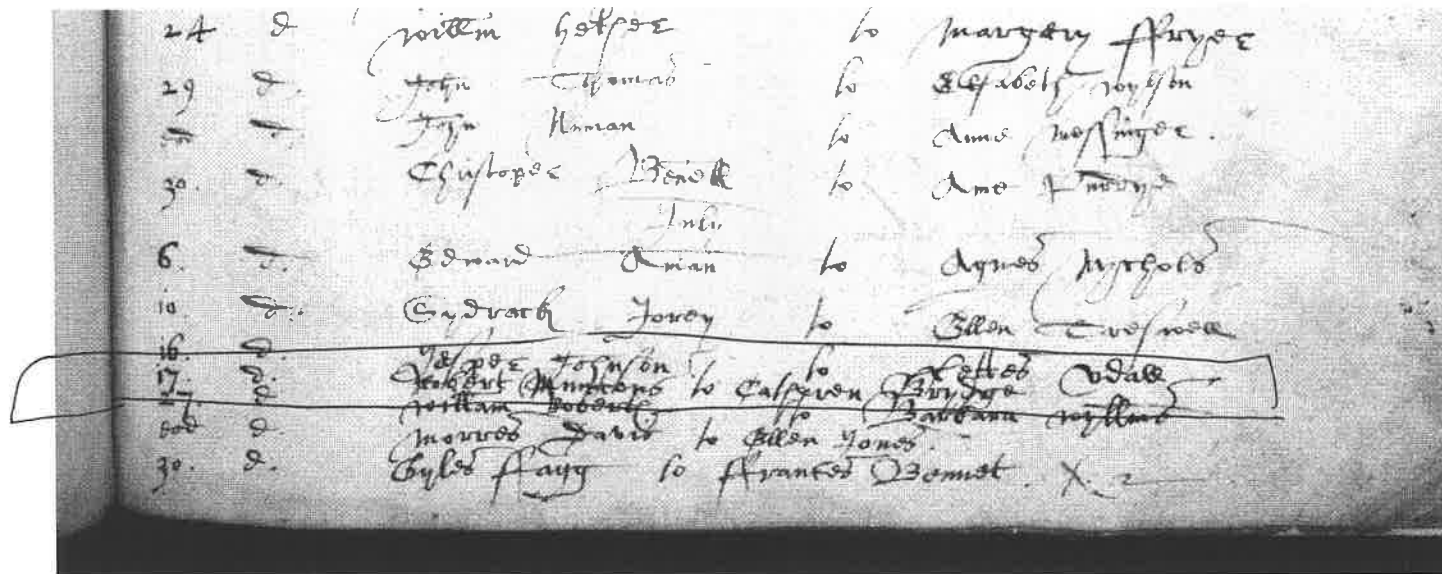 24 d willm helper to Margery ffryer
29 d. John Thomas to Elesabeth wylson
d. John Anman to Anne Messinger.
30. d. Christoper Benett to Ame
July
6. d. Edward Aman to Agnes Nychols
10. d. Sydrack Jorey to Ellen Treswell
16. d. Jesper Johnson to Lettes Vdall
17. d. Robert to Catheren Brydge
27 d william Robert to Barbara wyllms
eod d. Morres Davis to Ellen Jones.
30. d. Gyles ffagg to ffrances Bennet. X. 2